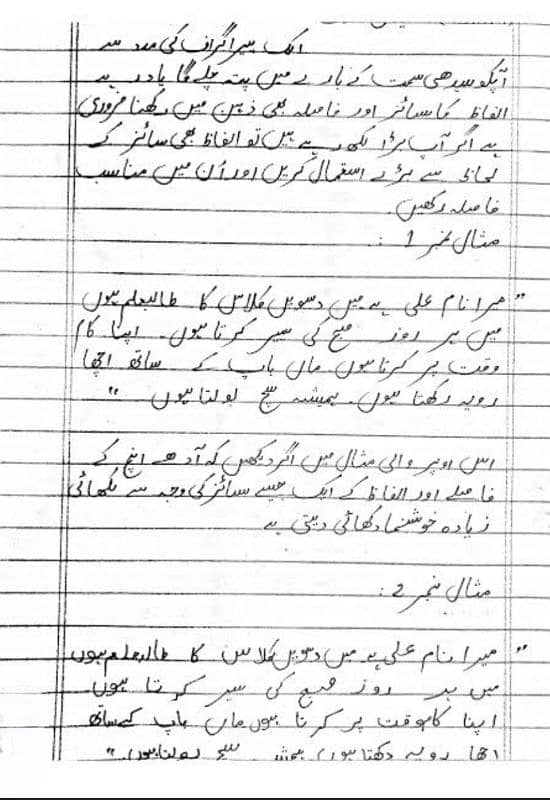 ایک پیراگراف کی مدد سے
آپکو سیدھی سمت کے بارے میں پتہ چلے گا یاد رہے
الفاظ کا سائز اور فاصلہ بھی ذہن میں رکھنا ضروری
ہے اگر آپ بڑا لکھ رہے ہیں تو الفاظ بھی سائز کے
لحاظ سے بڑے استعمال کریں اور اُن میں مناسب
فاصلہ رکھیں۔
مثال نمبر 1 :
" میرا نام علی ہے میں دسویں کلاس کا طالبعلم ہوں
میں ہر روز صبح کی سیر کرتا ہوں۔ اپنا کام
وقت پر کرتا ہوں۔ ماں باپ کے ساتھ اچھا
رویہ رکھتا ہوں۔ ہمیشہ سچ بولتا ہوں "
اس اوپر والی مثال میں اگر دیکھیں کہ آدھے انچ کے
فاصلے اور الفاظ کے ایک جیسے سائز کی وجہ سے لکھائی
زیادہ خوشنما دکھائی دیتی ہے
مثال نمبر 2 :
" میرا نام علی ہے میں دسویں کلاس کا طالبعلم ہوں
میں ہر روز صبح کی سیر کرتا ہوں
اپنا کام وقت پر کرتا ہوں ماں باپ کے ساتھ
اچھا رویہ رکھتا ہوں ہمیشہ سچ بولتا ہوں۔ "